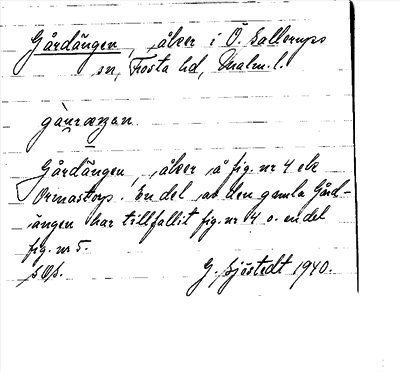 Gårdängen, åker i Ö. Sallerups
sn, Frosta hd, Malm. l.
gàuræŋan
Gårdängen, åker å fig. nr 4 etc
Ormastorp. En del av den gamla Gård-
ängen har tillfallit fig. nr 4 o. en del
fig. nr 5.
G. Sjöstedt 1940.